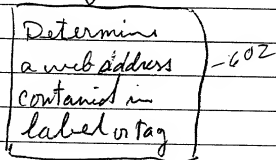 Determine
a web address -602
contained in
label or tag